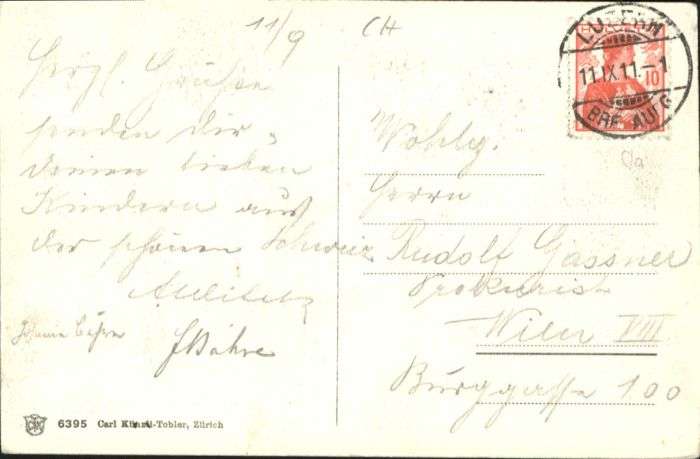 11/9
CH
LUZERN
11.IX.11.-1
BRF. AUFG
10
Herzl. Grüsse
senden Dir,
deinen lieben
Kindern aus
der schönen Schweiz
Bähre
Wohlg.
Herrn
Rudolf Gassner
Prokurist
Wien VIII
Burggasse 100
6395 Carl Künzli-Tobler, Zürich